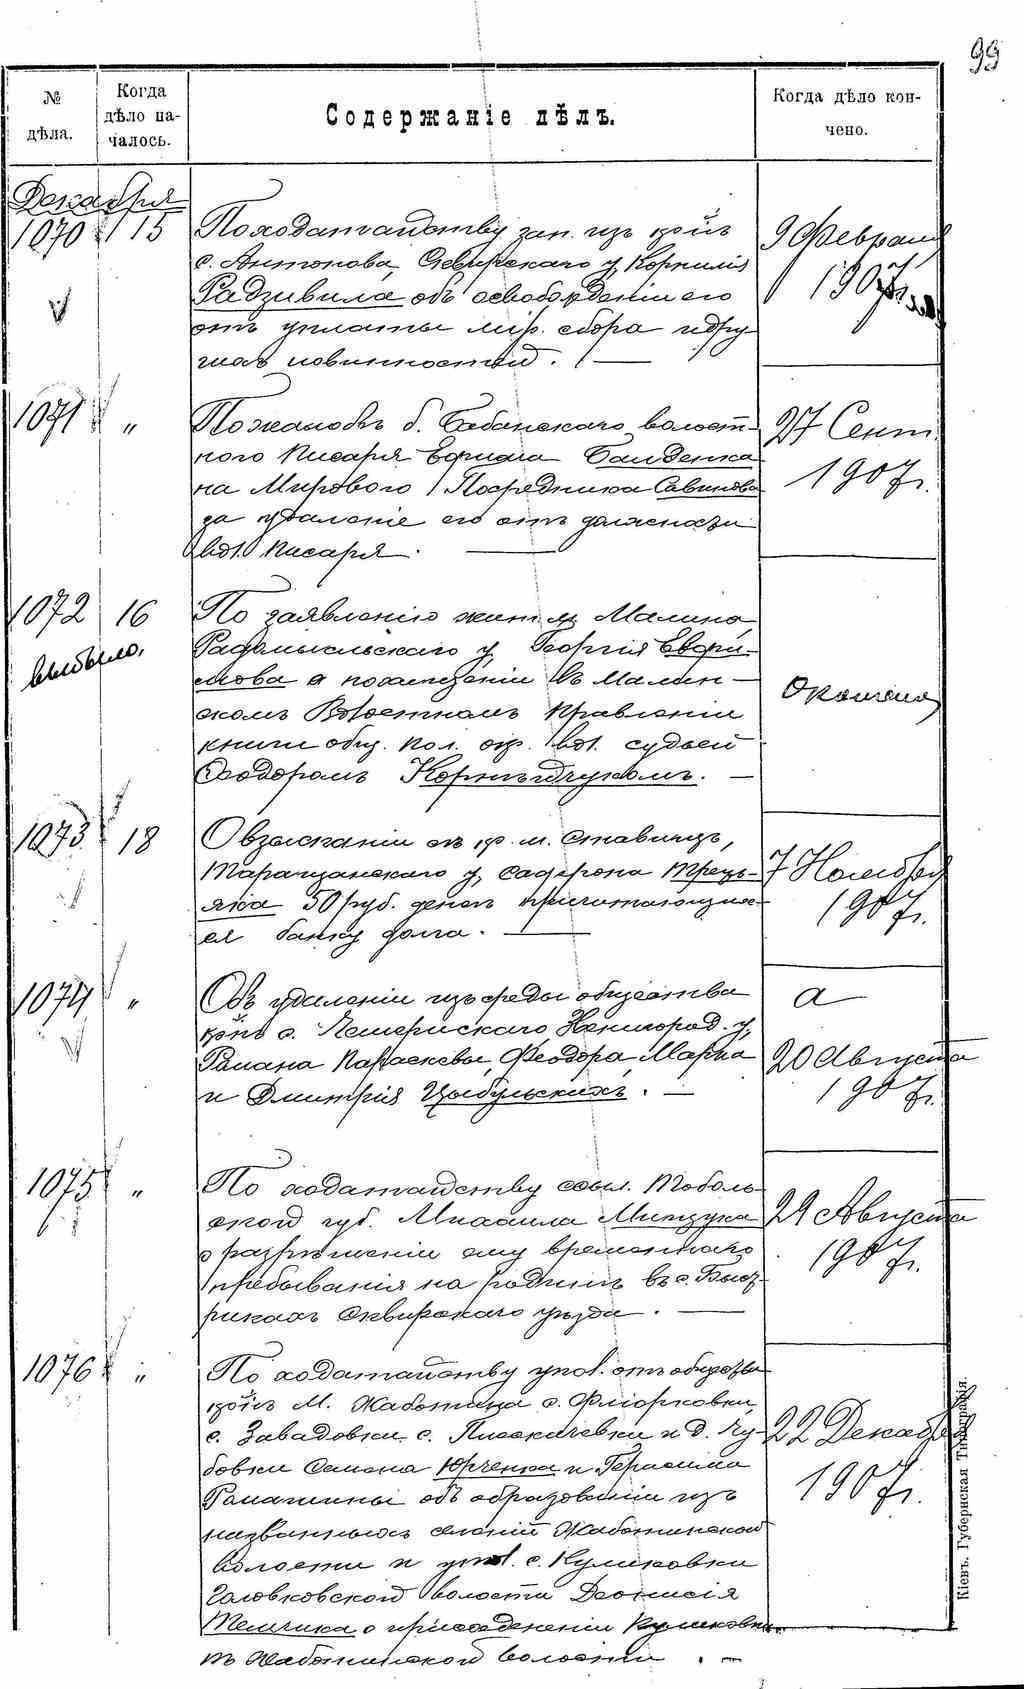 99
№ дѣла.
Когда дѣло на-
чалось.
Содержаніе дѣлъ.
Когда дѣло кон-
чено.
Декабря
1070 15
По ходатайству зап. изъ кр-нъ
с. Антонова, Сквирскаго у, Корнилія
Радзивила объ освобожденіи его
отъ уплаты мір. сбора и дру-
гихъ повинностей.
9 Февраля
1907 г.
1071 "
По жалобѣ б. Бабанскаго волост-
ного писаря
на Мирового Посредника Савинова
за удаленіе его отъ должности
вол. писаря.
27 Сент.
1907 г.
1072 16
выбыло.
По заявленію жит. м. Малина,
Радомысльскаго у, Георгія Ефри-
мова о похищеніи въ Малин-
скомъ Волостномъ Правленіи
книги общ. пол. вол. судьей
Феодоромъ Корнѣйчукомъ.
Окончено
1073 18
О взысканіи съ кр. м. Ставищъ,
Таращанскаго у, Сафрона Трець-
яка 50 руб. денегъ причитающих-
ся банку долга.
7 Ноября
1907 г.
1074 "
Объ удаленіи изъ среды общества
кр-нъ с. Звенигород. у,
Романа Параскевы, Феодора, Марка
и Дмитрія Цыбульскихъ.
а
20 Августа
1907 г.
1075 "
По ходатайству ссыл. Тоболь-
ской губ. Михаила Мищука
о разрѣшеніи ему временнаго
пребыванія на родинѣ въ с. Быст-
рикахъ Сквирскаго уѣзда.
29 Августа
1907 г.
1076 "
По ходатайству упол. отъ общества
кр-нъ М. Жаботина, с. Фліорковки,
с. Завадовки, с. Плескачевки и д. Чу-
бовки Семена Юрченка и Герасима
Романины объ образованіи изъ
названныхъ селеній Жаботинской
волости и упол. с. Куликовки
Головковской волости Діонисія
Темчика о присоединеніи Куликовки
къ Жаботинской волости.
22 Декабря
1907 г.
Кіевъ. Губернская Типографія.